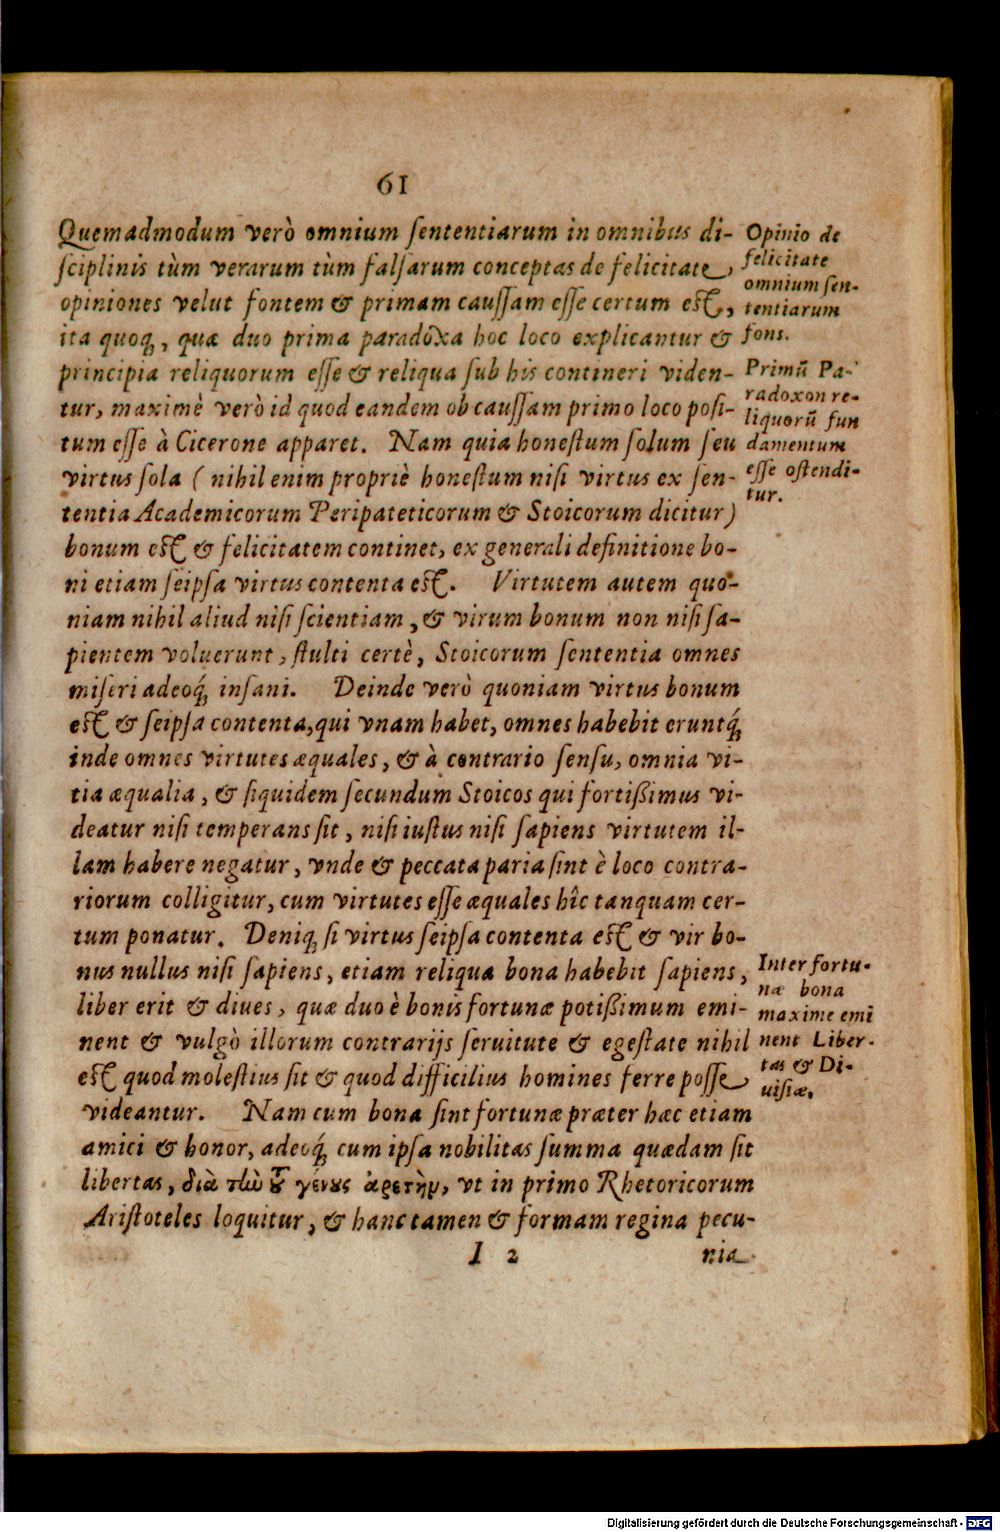 61
Quemadmodum verò omnium sententiarum in omnibus di-
sciplinis tùm verarum tùm falsarum conceptas de felicitate,
opiniones velut fontem & primam caussam esse certum est,
ita quoq, quæ duo prima paradoxa hoc loco explicantur &
principia reliquorum esse & reliqua sub his contineri viden-
tur, maximè verò id quod eandem ob caussam primo loco posi-
tum esse à Cicerone apparet. Nam quia honestum solum seu
virtus sola ( nihil enim propriè honestum nisi virtus ex sen-
tentia Academicorum Peripateticorum & Stoicorum dicitur)
bonum est & felicitatem continet, ex generali definitione bo-
ni etiam seipsa virtus contenta est. Virtutem autem quo-
niam nihil aliud nisi scientiam, & virum bonum non nisi sa-
pientem voluerunt, stulti certè, Stoicorum sententia omnes
miseri adeoq́ insani. Deinde verò quoniam virtus bonum
est & seipsa contenta, qui vnam habet, omnes habebit eruntq́
inde omnes virtutes æquales, & à contrario sensu, omnia vi-
tia æqualia, & siquidem secundum Stoicos qui fortißimus vi-
deatur nisi temperans sit, nisi iustus nisi sapiens virtutem il-
lam habere negatur, vnde & peccata paria sint è loco contra-
riorum colligitur, cum virtutes esse æquales hîc tanquam cer-
tum ponatur. Deniq si virtus seipsa contenta est & vir bo-
nus nullus nisi sapiens, etiam reliqua bona habebit sapiens,
liber erit & diues, quæ duo è bonis fortunæ potißimum emi-
nent & vulgò illorum contrarijs seruitute & egestate nihil
est quod molestius sit & quod difficilius homines ferre posse
videantur. Nam cum bona sint fortunæ præter hæc etiam
amici & honor, adeoq́ cum ipsa nobilitas summa quædam sit
libertas, διὰ τὴν τοῦ γένους ἀρετὴν, vt in primo Rhetoricorum
Aristoteles loquitur, & hanc tamen & formam regina pecu-
I 2 nia
Opinio de
felicitate
omnium sen-
tentiarum
fons.
Primũ Pa-
radoxon re-
liquorũ fun
damentum
esse ostendi-
tur.
Inter fortu-
næ bona
maxime emi
nent Liber-
tas & Di-
uisiæ,
Digitalisierung gefördert durch die Deutsche Forschungsgemeinschaft - DFG